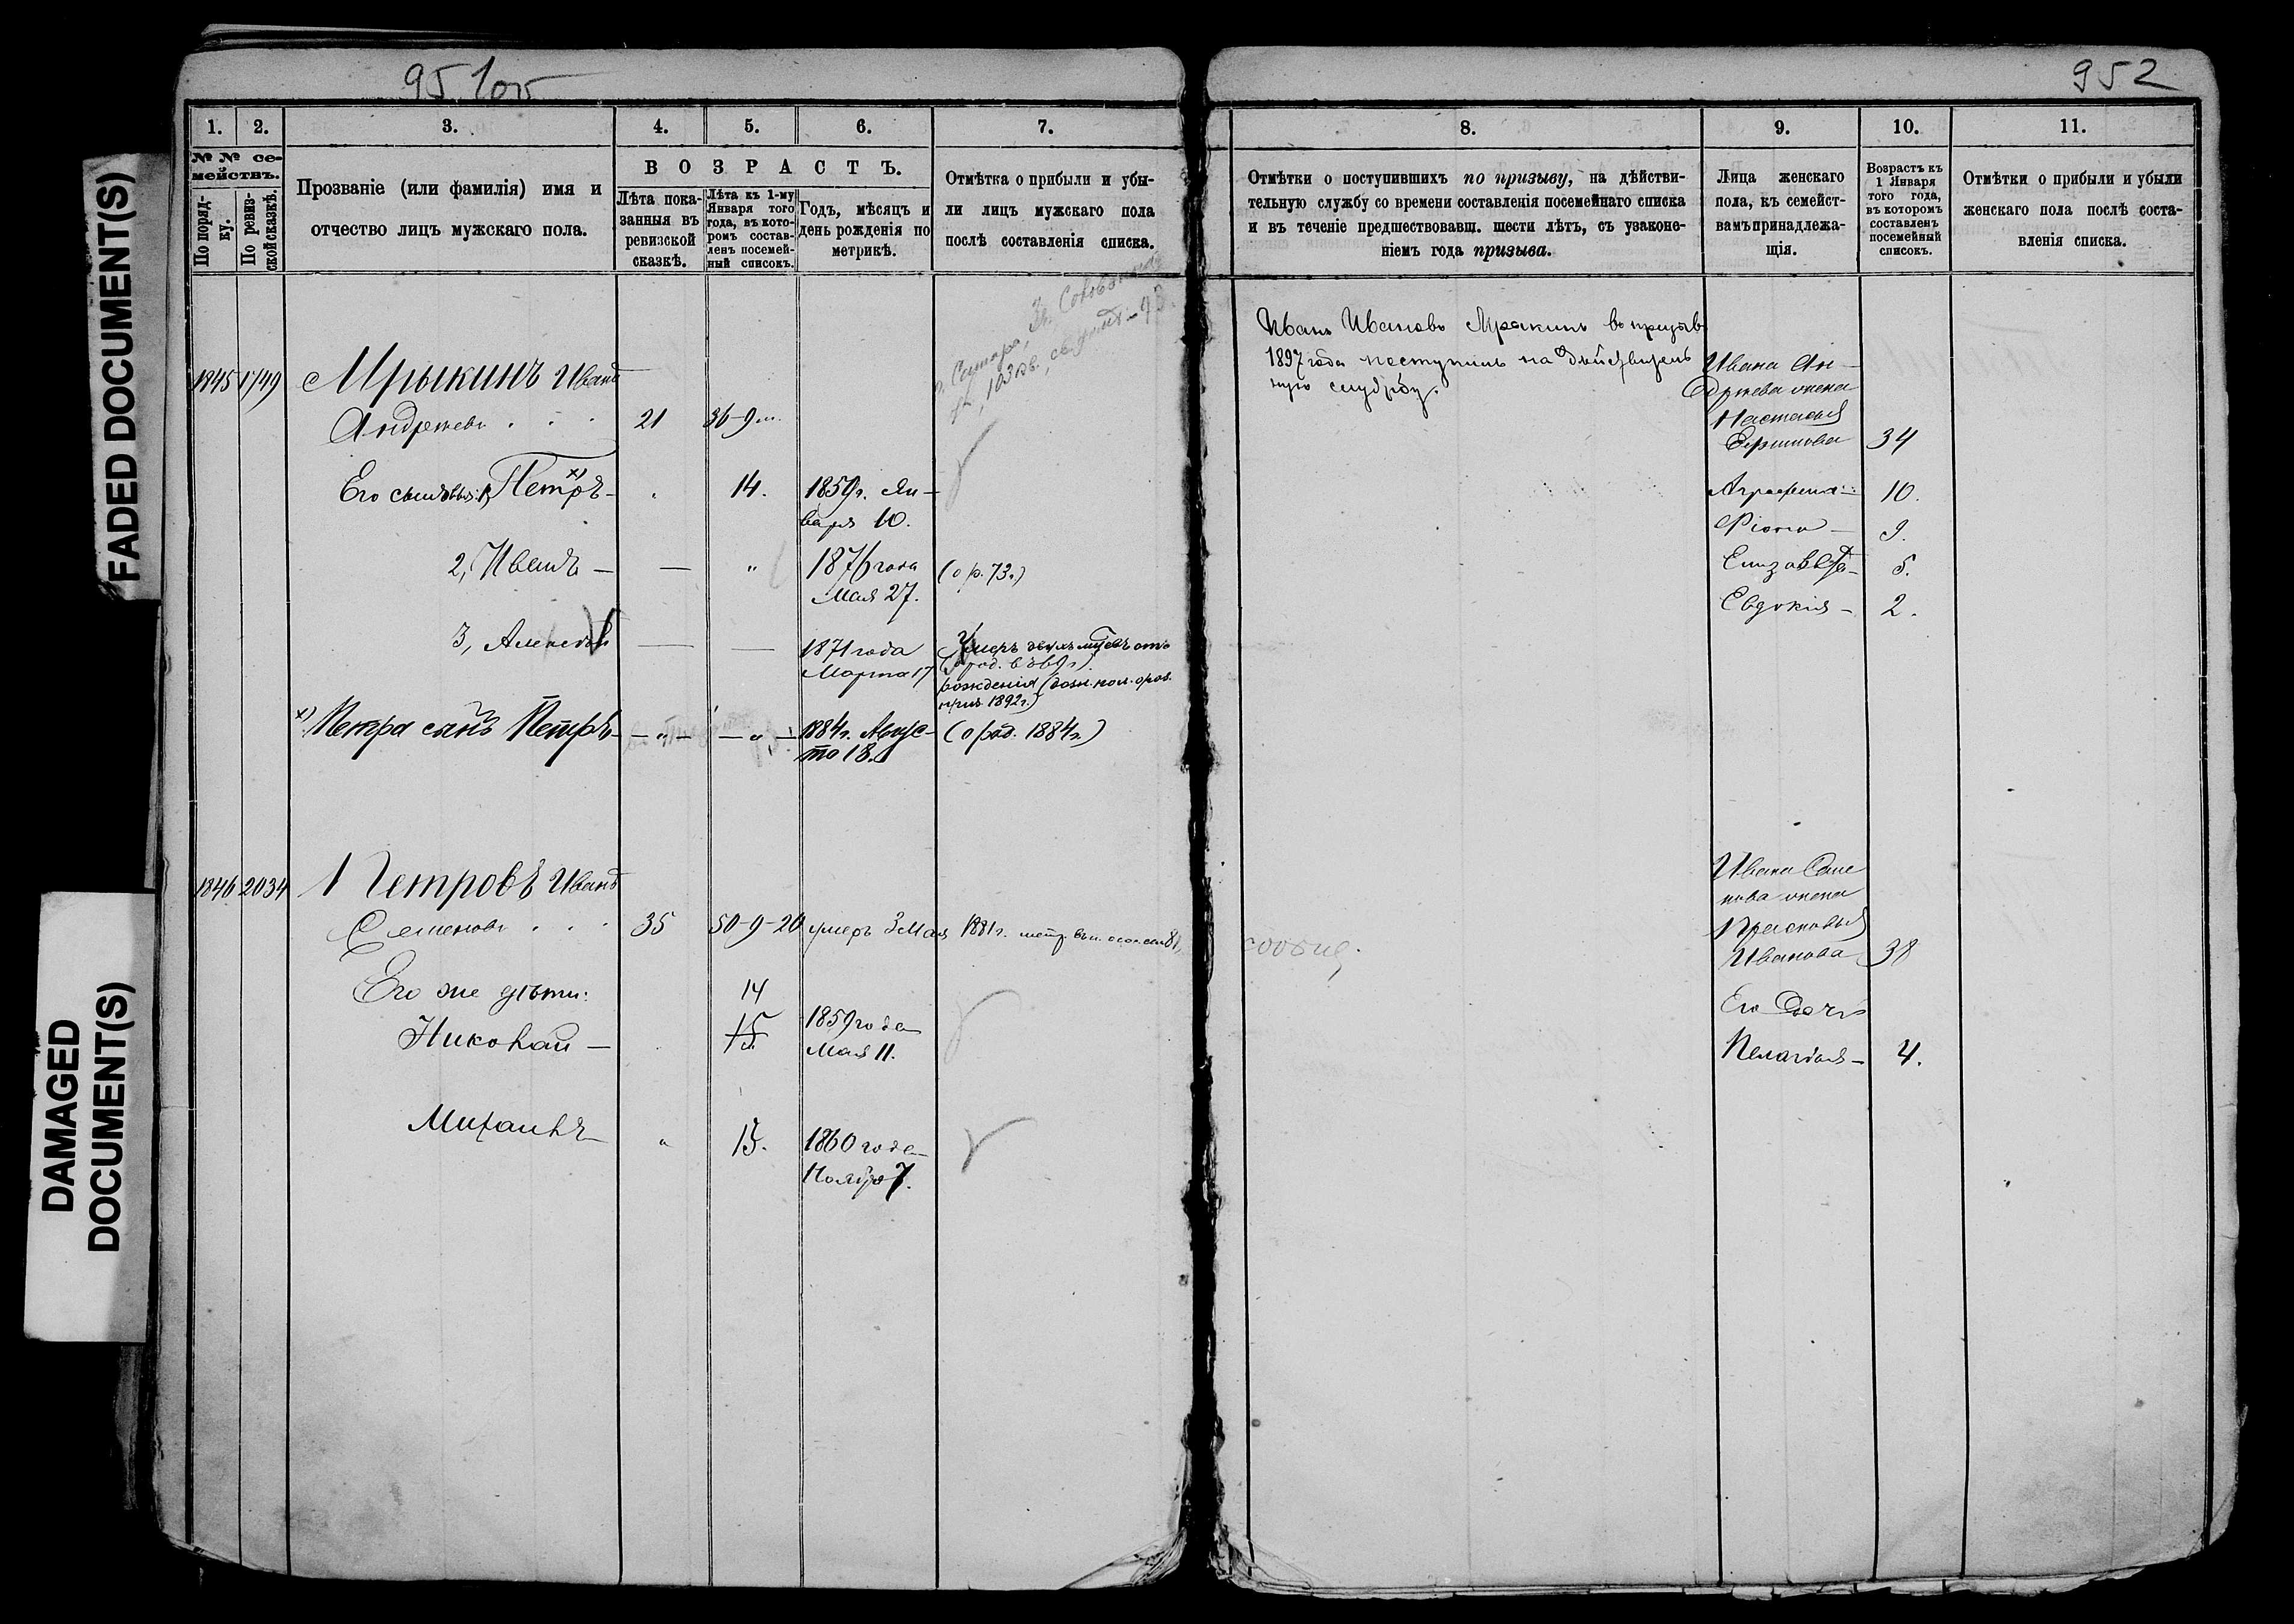 FADED DOCUMENT(S)
DAMAGED
DOCUMENT(S)
951об
1. 2. 3. 4. 5. 6. 7.
№ № се-
мействъ.
По поряд-
ку.
По ревиз-
ской сказкѣ.
Прозваніе (или фамилія) имя и
отчество лицъ мужскаго пола.
ВОЗРАСТЪ.
Лѣта пока-
занныя въ
ревизской
сказкѣ.
Лѣта къ 1-му
Января того
года, въ кото-
ромъ состав-
ленъ посемей-
ный списокъ.
Годъ, мѣсяцъ и
день рожденія по
метрикѣ.
Отмѣтка о прибыли и убы-
ли лицъ мужскаго пола
послѣ составленія списка.
1845 1749 Мрыкинъ Иванъ
Андреевъ . . . 21 36-9 м.
Его сыновья: 1, Петръ x) - 14. 1859 г. Ян-
варя 10.
2, Иванъ — — " 1876 года (о р. 73.)
Мая 27.
3, Алексѣй — — 1871 года
Марта 17
Умеръ
рожденія
1892 г.)
x) Петра сынъ Петръ - — " — — " — 1884 г. Авгус- (о род. 1884 г.)
та 18.
1846 2034 Петровъ Иванъ
Семеновъ . . . 35 50-9-20 умеръ 3 Мая 1881 г.
Его же дѣти: 14
Николай — 15 1859 года
Мая 11.
Михаилъ — " 13. 1860 года
Ноября 7.
952
8. 9. 10. 11.
Отмѣтки о поступившихъ по призыву, на дѣйстви-
тельную службу со времени составленія посемейнаго списка
и въ теченіе предшествовавш. шести лѣтъ, съ узаконе-
ніемъ года призыва.
Лица женскаго
пола, къ семейст-
вамъ принадлежа-
щія.
Возрастъ къ
1 Января
того года,
въ которомъ
составленъ
посемейный
списокъ.
Отмѣтки о прибыли и убыли
женскаго пола послѣ соста-
вленія списка.
Иванъ Ивановъ Мракинъ въ призывъ
1897 года поступилъ на дѣйствитель
ную службу.
Ивана Ан-
дреева жена
Настасья
Ефимова 34
Аграфена 10.
9.
Елизавета - 5.
Евдокія - 2.
Ивана Семе
нова жена
Прасковья
Иванова 38
сообщ.
Его дочь
Пелагѣя - 4.